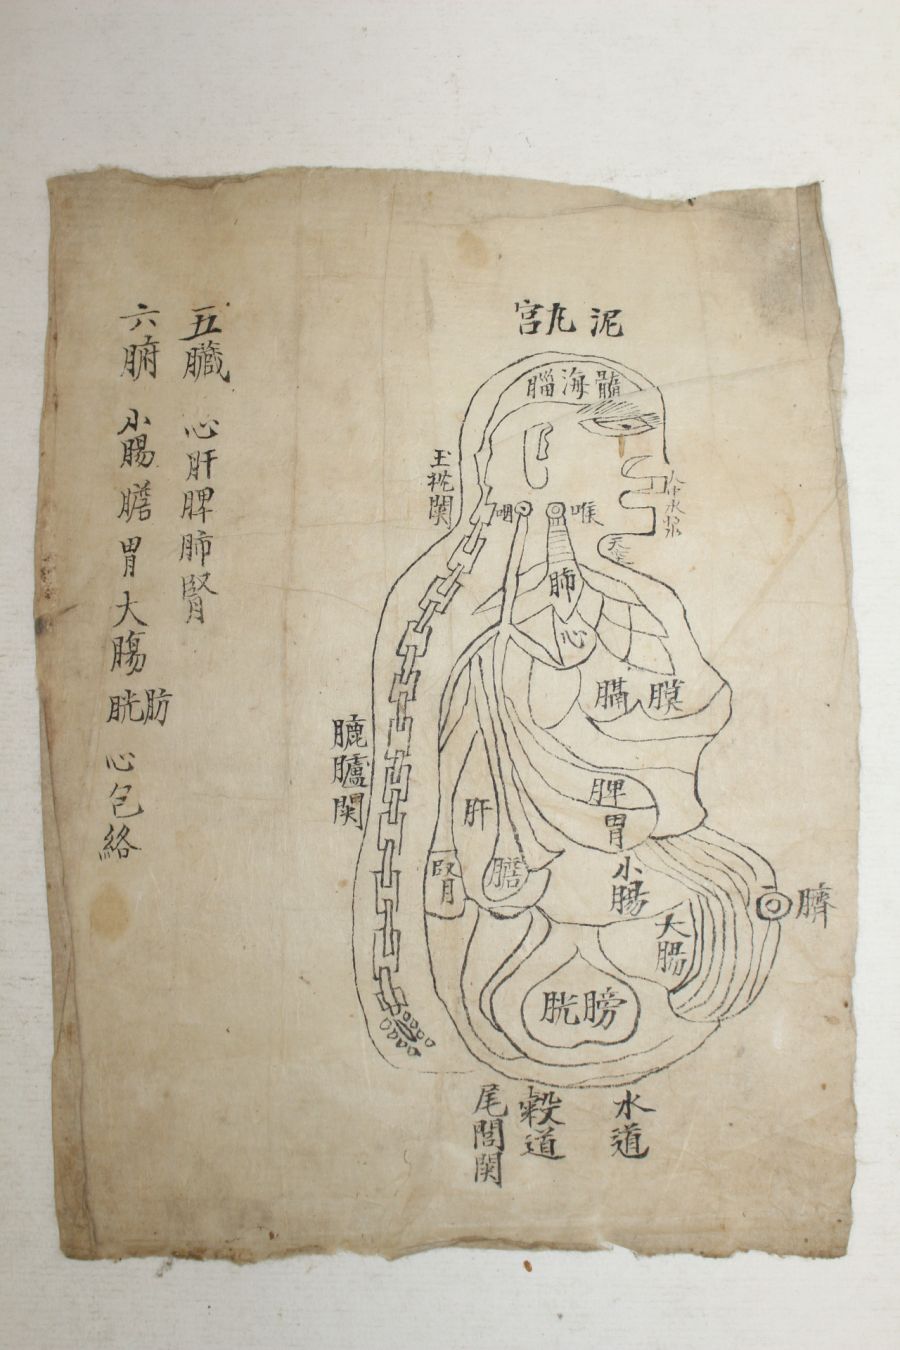 泥丸宮
髓海腦
玉枕關
咽
喉
天
肺
心
膈膜
脾
胃
肝
膽
腎
小腸
大腸
臍
膀胱
水道
糓道
尾閭關
五臟 心肝脾肺腎
六腑 小腸 膽 胃 大腸 膀胱 心包絡